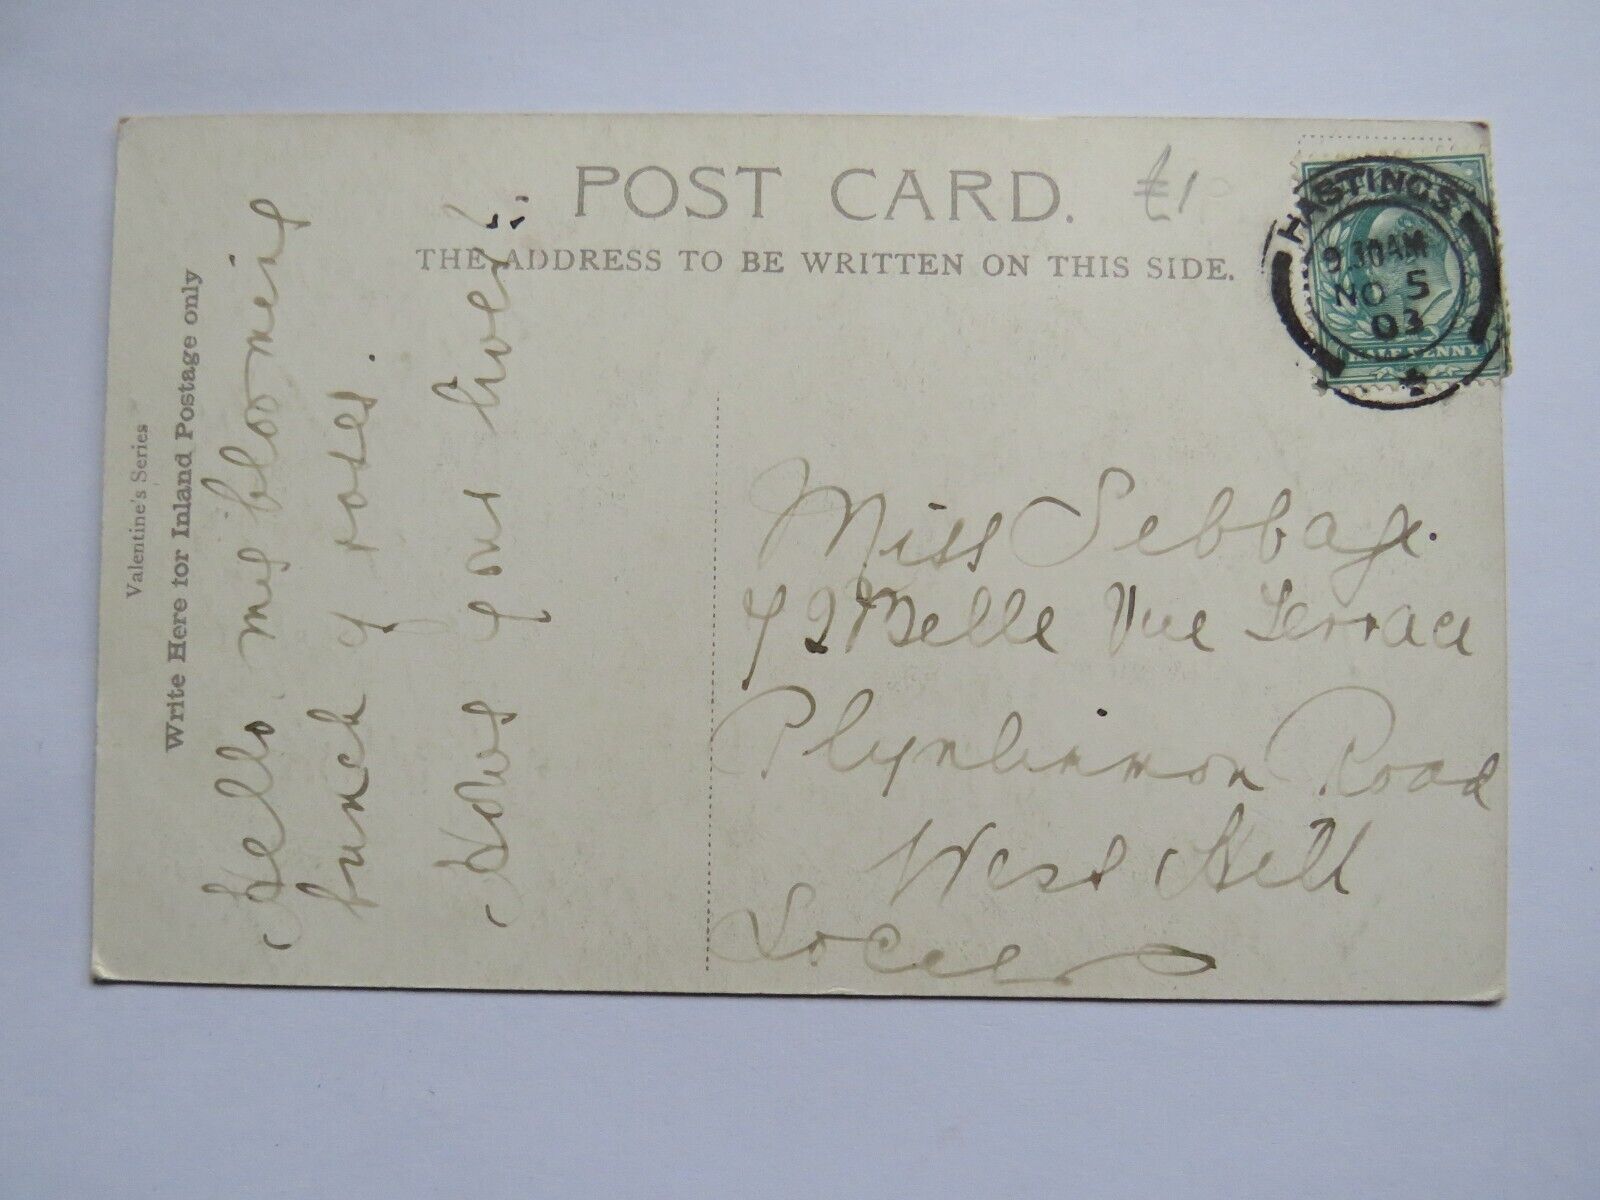 POST CARD.
£1
THE ADDRESS TO BE WRITTEN ON THIS SIDE.
HASTINGS
9.30AM
NO 5
03
HALFPENNY
Valentine's Series
Write Here for Inland Postage only
Hello my blooming
bunch of roses.
Hows your
Miss Sebbage.
72 Belle Vue Terrace
Plynlimmon Road
West Hill